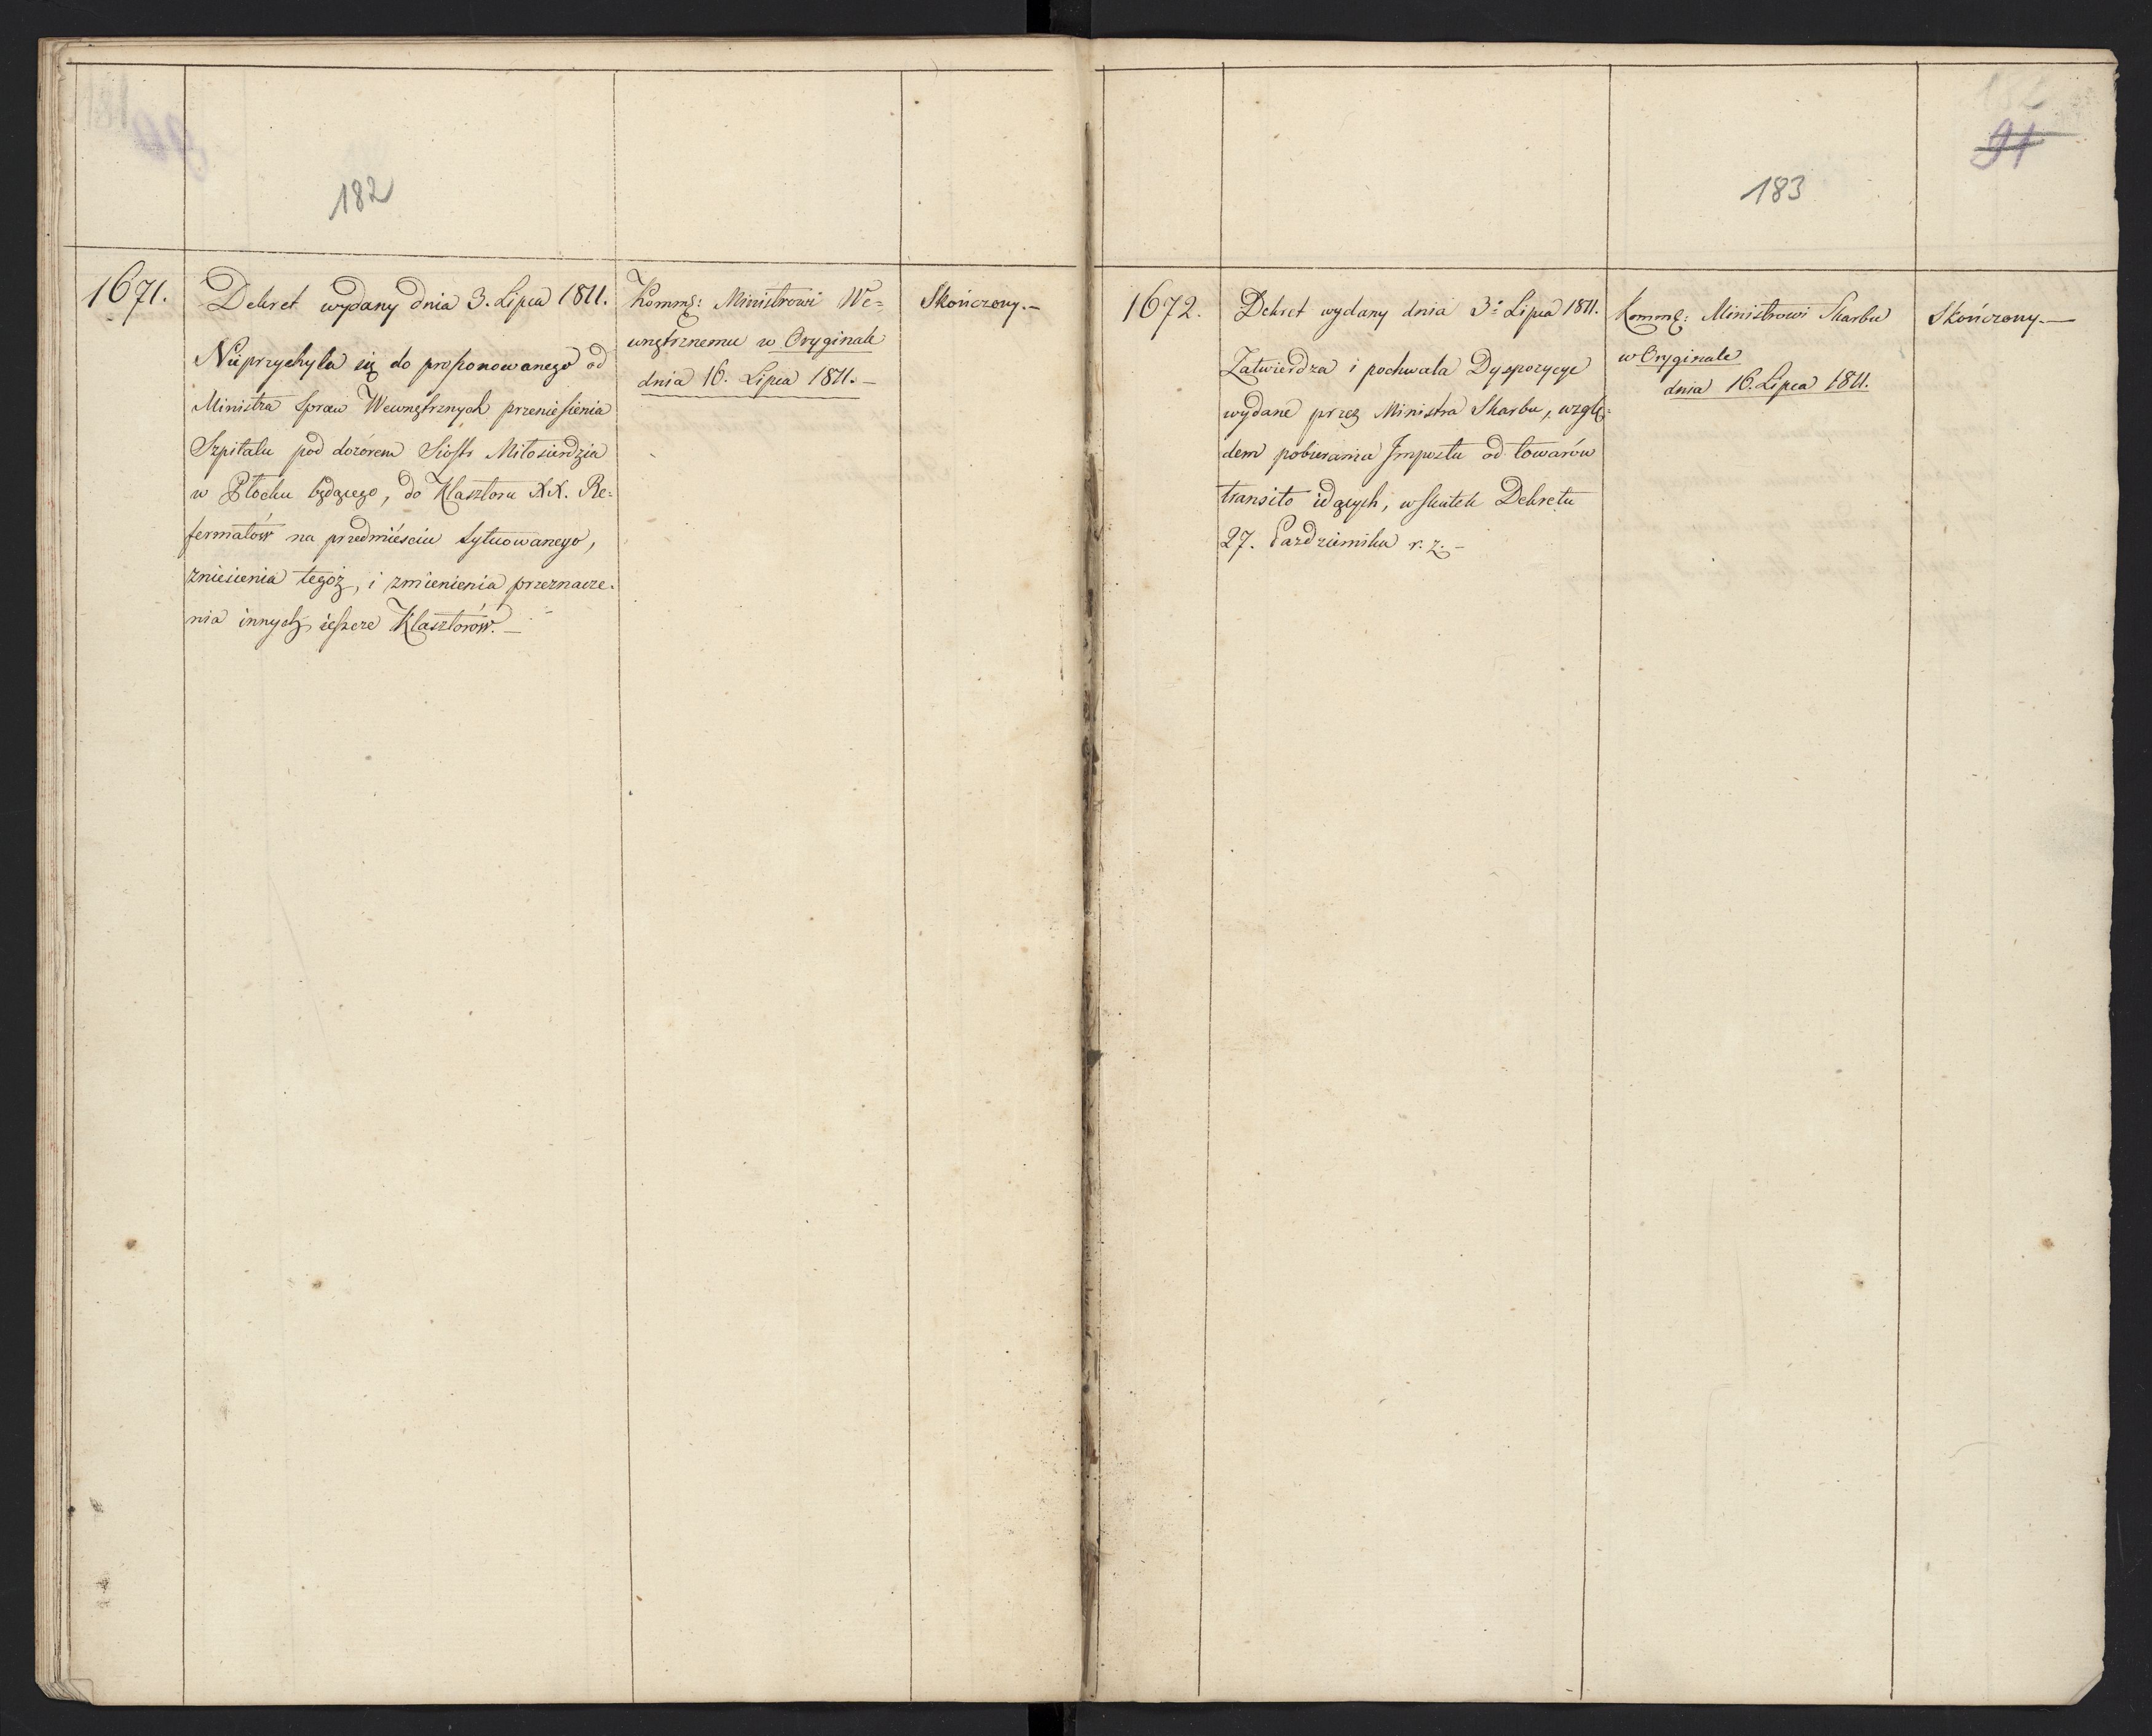 182
1671.
Dekret wydany dnia 3. Lipca 1811.
Nieprzychyla się do proponowanego od
Ministra Spraw Wewnętrznych przeniesienia
Szpitalu pod dozorem Siostr Miłosierdzia
w Płocku będącego, do Klasztoru XX. Re=
formatów na przedmieściu sytuowanego,
zniesienia tegoż, i zmienienia przeznacze-
nia innych ieszcze Klasztorów.—
Kommę: Ministrowi We=
wnętrznemu w Oryginale
dnia 16. Lipca 1811.—
Skończony.—
91
183
1672.
Dekret wydany dnia 3º Lipca 1811.
Zatwierdza i pochwala Dyspozycye
wydane przez Ministra Skarbu, wzglę=
dem pobierania Impostu od towarów
transito idących, w skutek Dekretu
27. Pazdziernika r. z.—
Kommę: Ministrowi Skarbu
w Oryginale
dnia 16. Lipca 1811.
Skończony.—